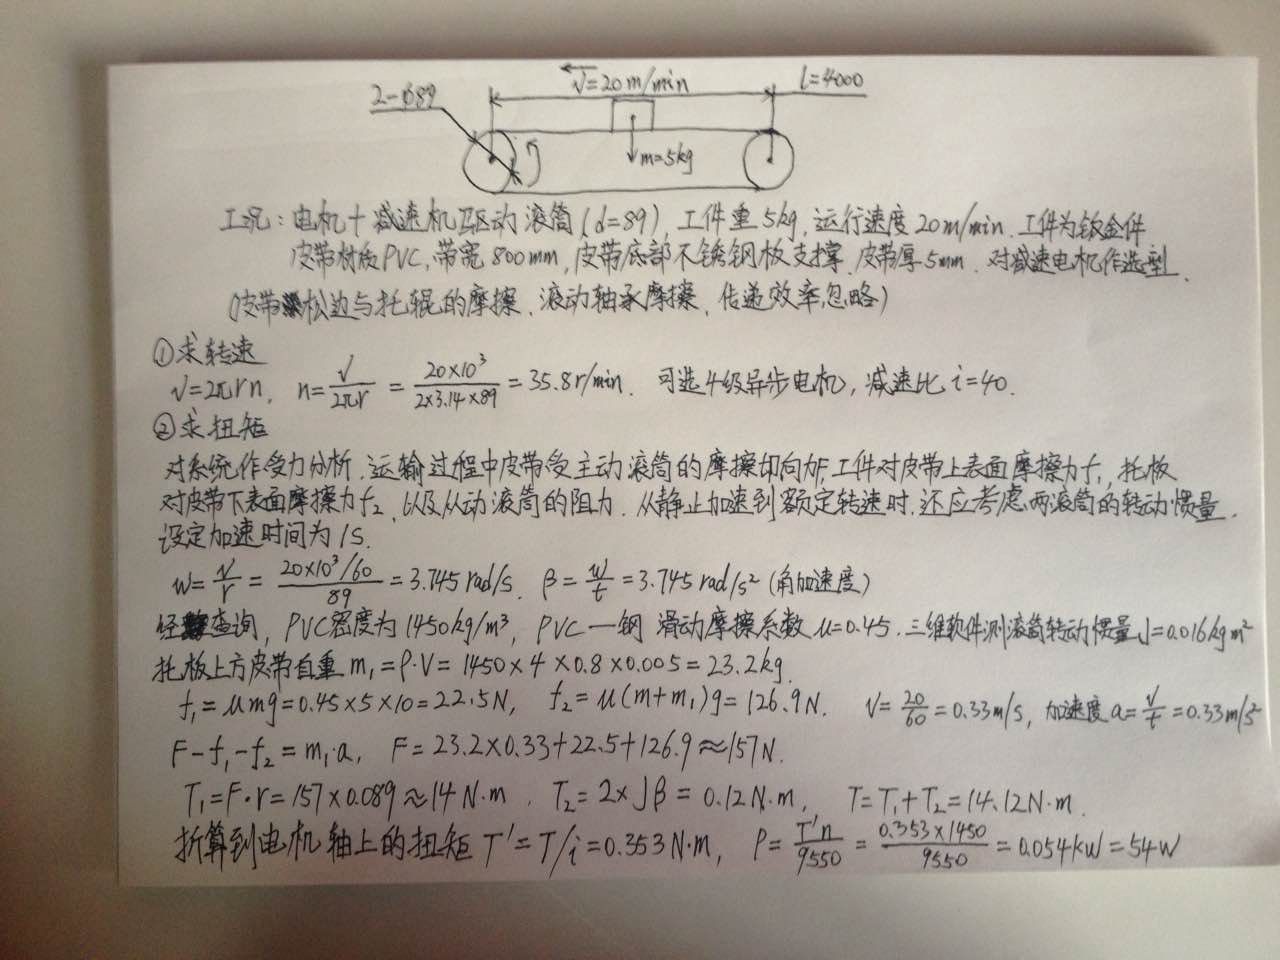 v=20m/min
l=4000
2-φ89
m=5kg
工况:电机+减速机驱动滚筒(d=89),工件重5kg,运行速度20m/min.工件为钣金件
皮带材质PVC,带宽800mm,皮带底部不锈钢板支撑.皮带厚5mm.对减速电机作选型.
(皮带松边与托辊的摩擦、滚动轴承摩擦、传递效率忽略)
①求转速
v=2πrn, n=v/2πr=20×10³/2×3.14×89=35.8r/min. 可选4级异步电机,减速比i=40.
②求扭矩
对系统作受力分析.运输过程中皮带受主动滚筒的摩擦切向力F,工件对皮带上表面摩擦力f₁,托板
对皮带下表面摩擦力f₂,以及从动滚筒的阻力.从静止加速到额定转速时.还应考虑两滚筒的转动惯量.
设定加速时间为1s.
w=v/r=20×10³/60/89=3.745rad/s. β=w/t=3.745rad/s²(角加速度)
经查询,PVC密度为1450kg/m³,PVC—钢 滑动摩擦系数μ=0.45.三维软件测滚筒转动惯量J=0.016kgm²
托板上方皮带自重m₁=ρ·V=1450×4×0.8×0.005=23.2kg.
f₁=μmg=0.45×5×10=22.5N, f₂=μ(m+m₁)g=126.9N. v=20/60=0.33m/s,加速度a=v/t=0.33m/s²
F-f₁-f₂=m₁·a, F=23.2×0.33+22.5+126.9≈157N.
T₁=F·r=157×0.089≈14N·m. T₂=2×Jβ=0.12N·m, T=T₁+T₂=14.12N·m.
折算到电机轴上的扭矩T'=T/i=0.353N·m, P=T'n/9550=0.353×1450/9550=0.054kw=54w